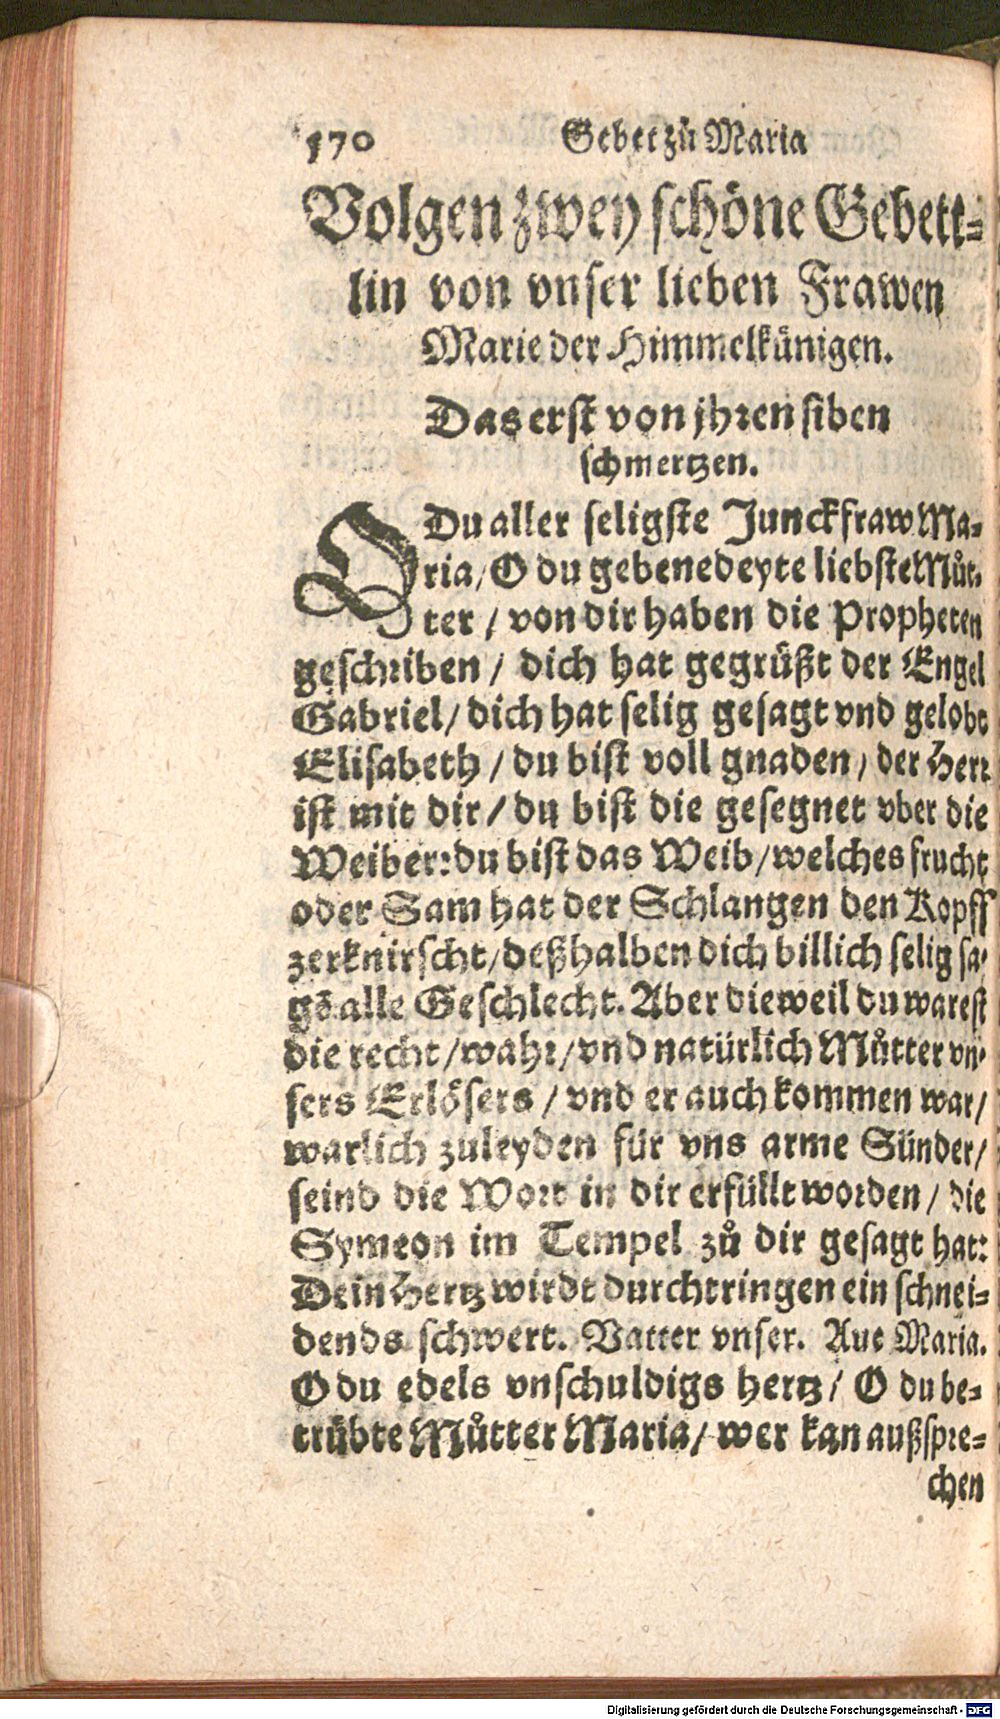 170 Gebet zů Maria
Volgen zwey schöne Gebett-
lin von vnser lieben Frawen
Marie der Himmelkünigen.
Das erst von jhren siben
schmertzen.
O Du aller seligste Junckfraw Ma-
ria/ O du gebenedeyte liebste Můt-
ter / von dir haben die Propheten
geschriben / dich hat gegrüßt der Engel
Gabriel/ dich hat selig gesagt vnd gelobt
Elisabeth / du bist voll gnaden / der Herr
ist mit dir / du bist die gesegnet vber die
Weiber: du bist das Weib / welches frucht
oder Sam hat der Schlangen den Kopff
zerknirscht/ deßhalben dich billich selig sa-
gē alle Geschlecht. Aber dieweil du warest
die recht / wahr / vnd natürlich Můtter vn-
sers Erlösers / vnd er auch kommen war/
warlich zuleyden für vns arme Sünder/
seind die Wort in dir erfüllt worden / die
Symeon im Tempel zů dir gesagt hat:
Dein Hertz wirdt durchtringen ein schnei-
dends schwert. Vatter vnser. Aue Maria.
O du edels vnschuldigs hertz / O du be-
trübte Můtter Maria / wer kan außspre-
chen
Digitalisierung gefördert durch die Deutsche Forschungsgemeinschaft - DFG